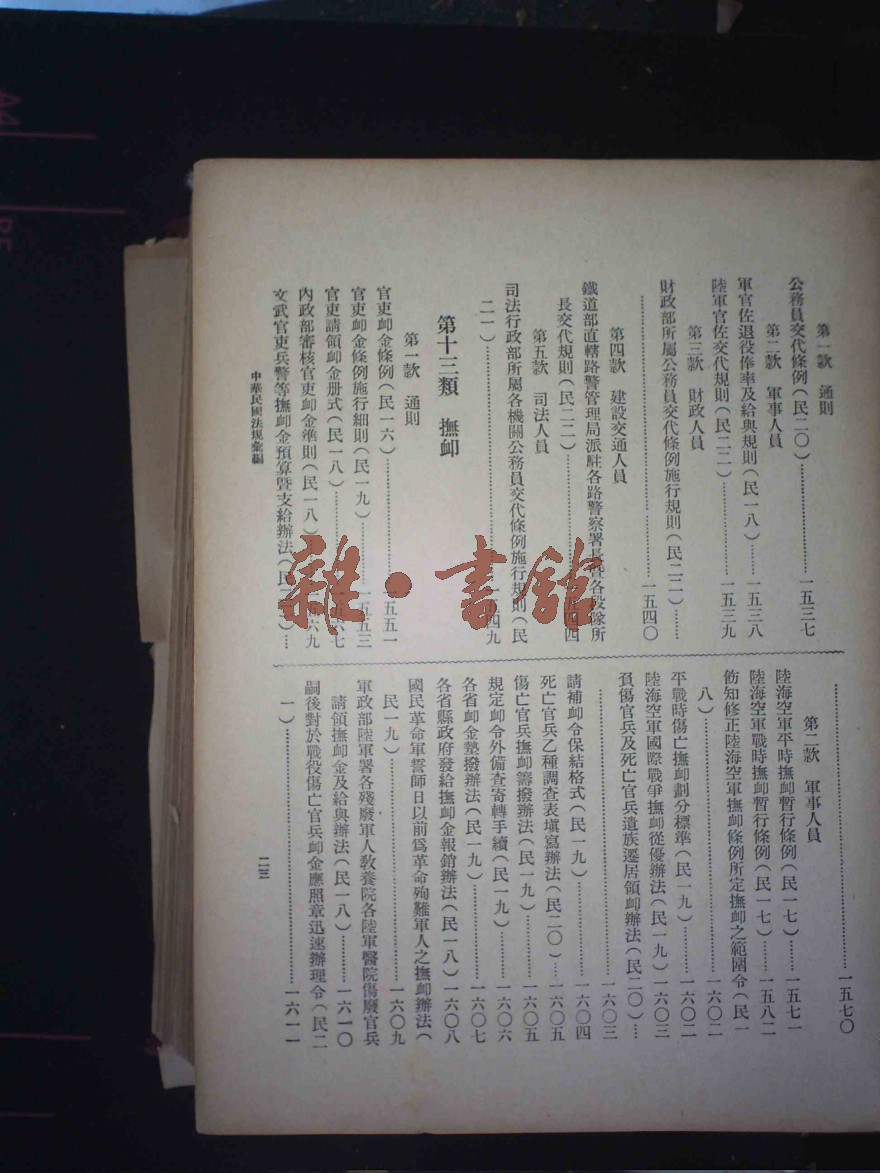 第一款　通則
公務員交代條例（民二〇）……一五三七
第二款　軍事人員
軍官佐退役俸率及給與規則（民一八）……一五三八
陸軍官佐交代規則（民二二）……一五三九
第三款　財政人員
財政部所屬公務員交代條例施行規則（民二二）……
……一五四〇
第四款　建設交通人員
鐵道部直轄路警管理局派駐各路警察署長暨各段隊所
長交代規則（民二二）……四四
第五款　司法人員
司法行政部所屬各機關公務員交代條例施行規則（民
二一）……一五四九
第十三類　撫卹
第一款　通則
官吏卹金條例（民一六）……一五五一
官吏卹金條例施行細則（民一九）……一五五三
官吏請領卹金册式（民一八）……六七
內政部審核官吏卹金準則（民一八）……六九
文武官吏兵警等撫卹金預算暨支給辦法（民……
……一五七〇
第二款　軍事人員
陸海空軍平時撫卹暫行條例（民一七）……一五七一
陸海空軍戰時撫卹暫行條例（民一七）……一五八二
飭知修正陸海空軍撫卹條例所定撫卹之範圍令（民一
八）……一六〇二
平戰時傷亡撫卹劃分標準（民一九）……一六〇二
陸海空軍國際戰爭撫卹從優辦法（民一九）一六〇三
負傷官兵及死亡官兵遺族遷居領卹辦法（民二〇）……
……一六〇三
請補卹令保結格式（民一九）……一六〇四
死亡官兵乙種調查表填寫辦法（民二〇）…一六〇五
傷亡官兵撫卹籌撥辦法（民一九）……一六〇五
規定卹令外備查寄轉手續（民一九）……一六〇六
各省卹金墊撥辦法（民一九）……一六〇七
各省縣政府發給撫卹金報銷辦法（民一八）一六〇八
國民革命軍誓師日以前爲革命殉難軍人之撫卹辦法（
民一九）……一六〇九
軍政部陸軍署各殘廢軍人教養院各陸軍醫院傷廢官兵
請領撫卹金及給與辦法（民一八）……一六一〇
嗣後對於戰役傷亡官兵卹金應照章迅速辦理令（民二
一）……一六一一
中華民國法規彙編
二三
雜·書館